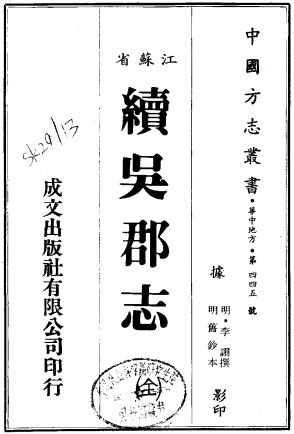 中國方志叢書・華中地方・第四四五號
據
明・李詡撰
明舊鈔本
影印
江蘇省
續吳郡志
成文出版社有限公司印行